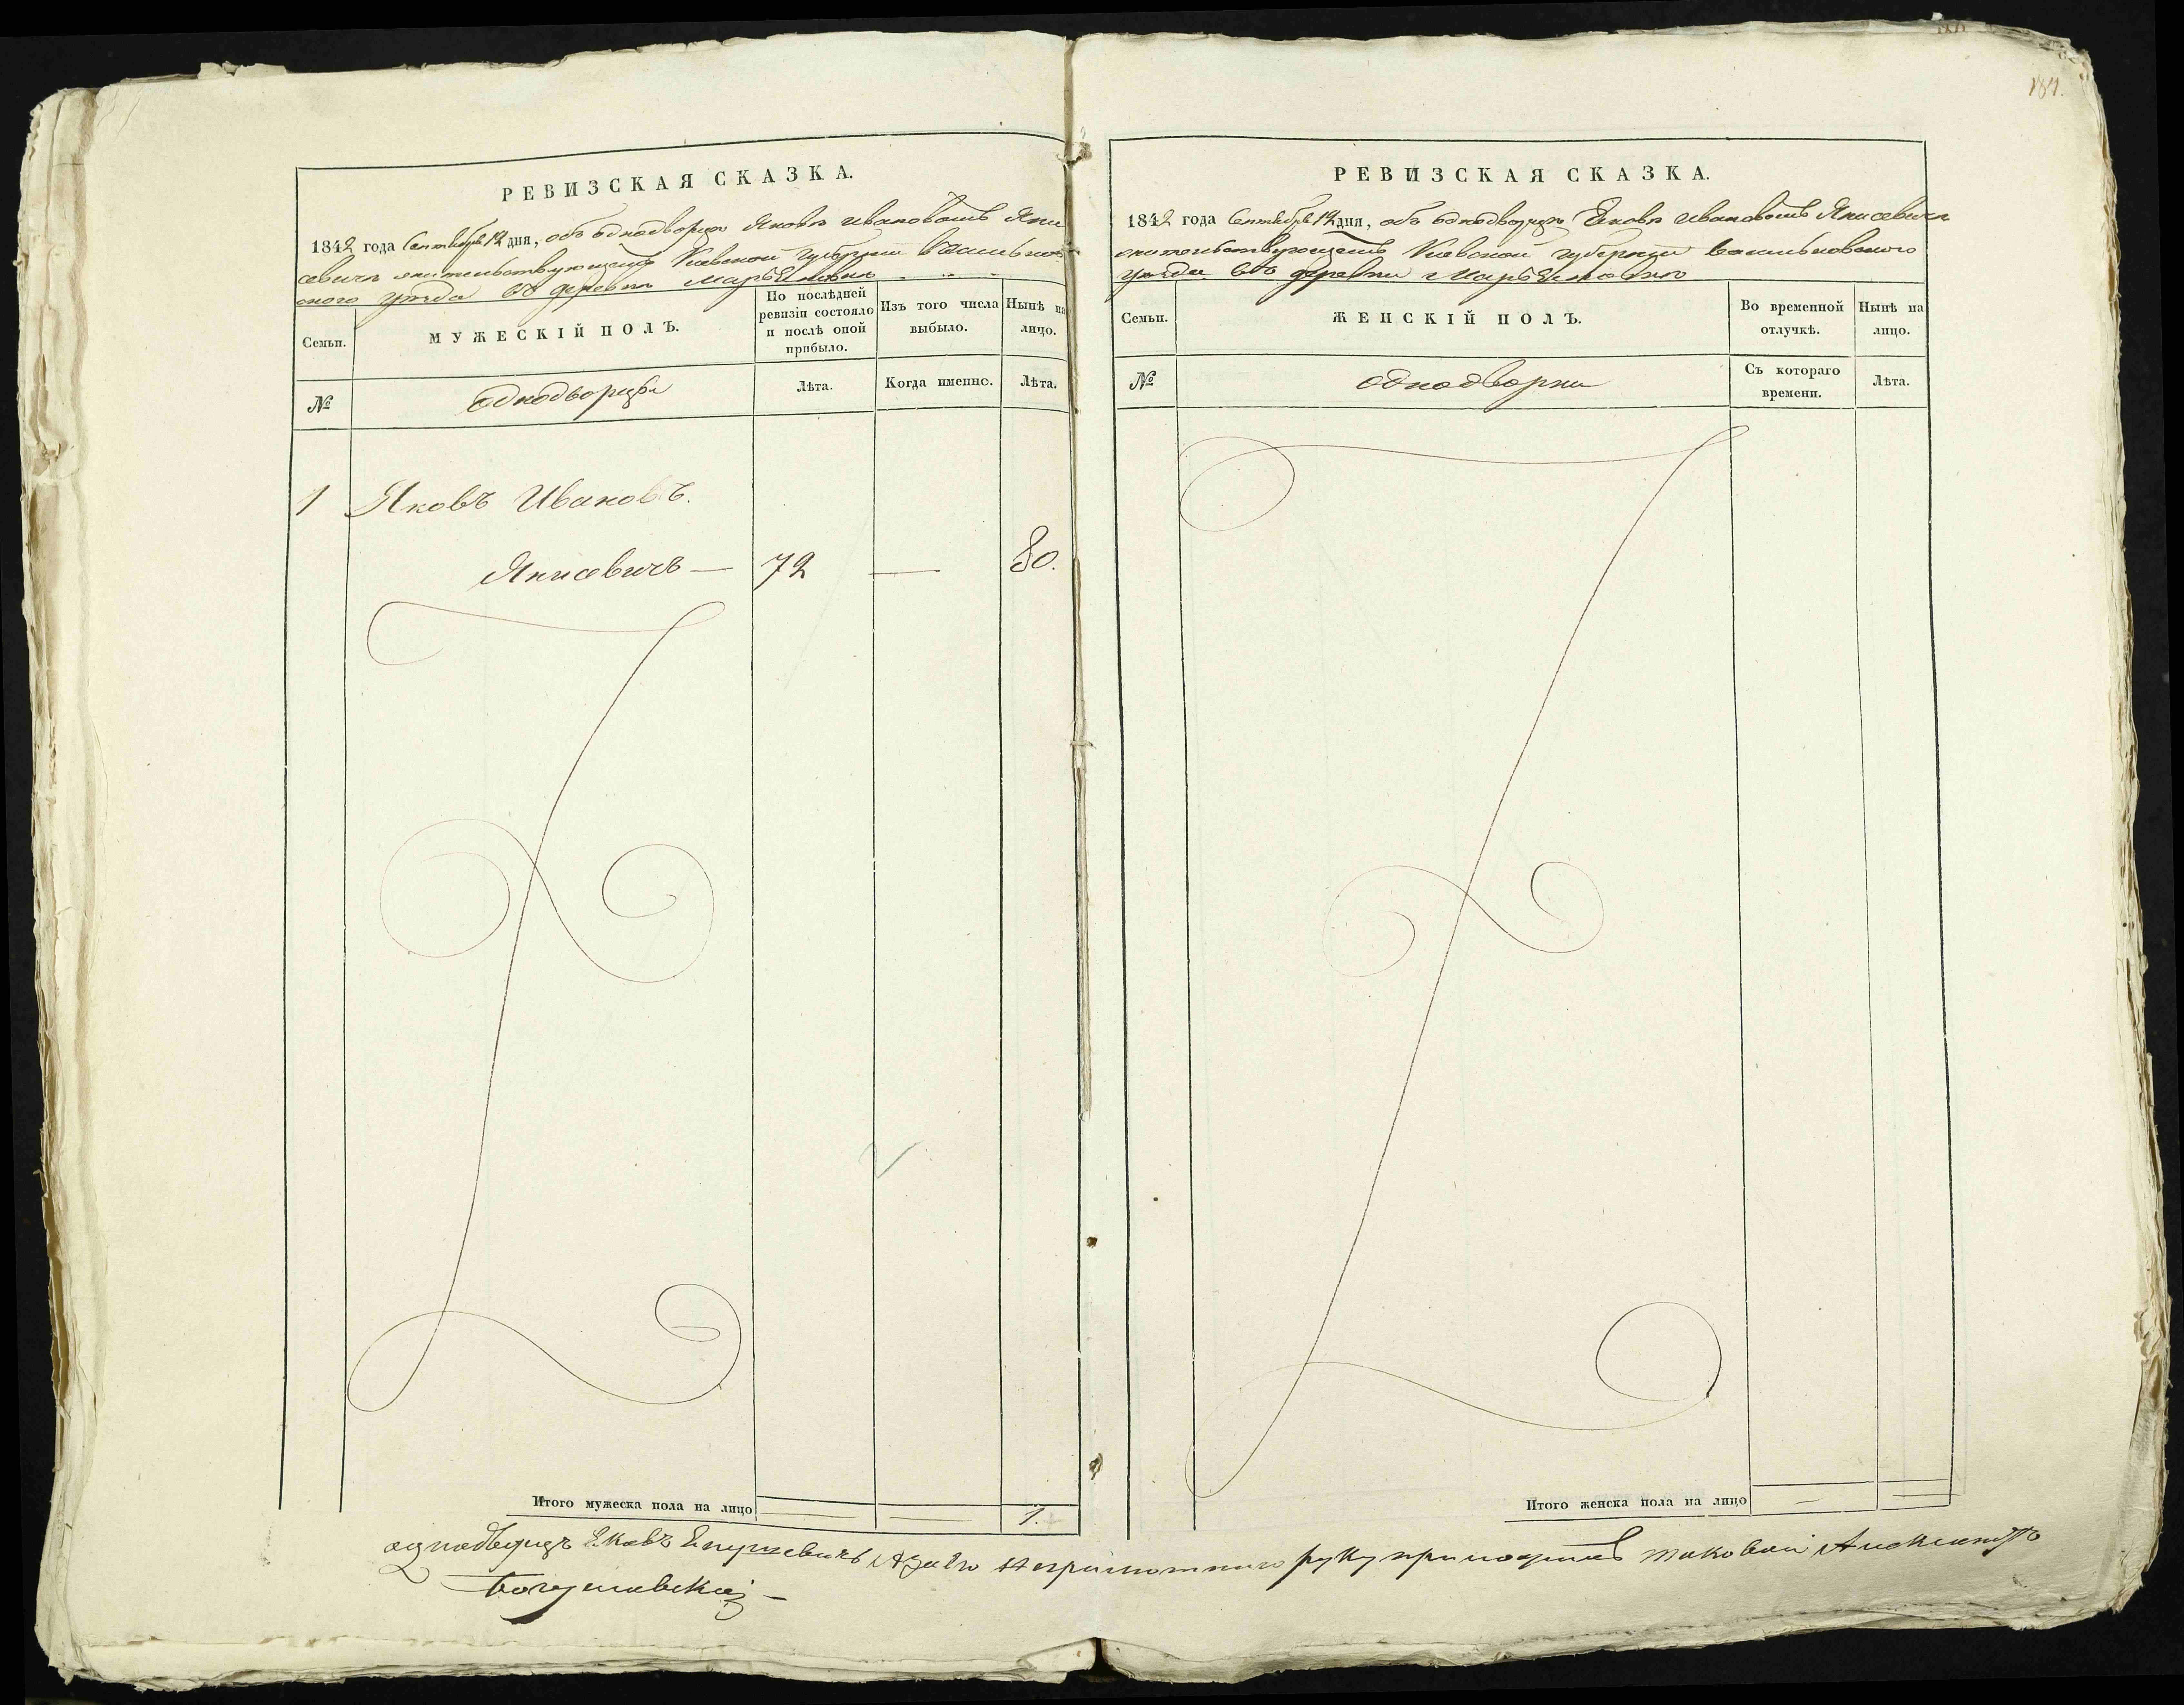 184.
РЕВИЗСКАЯ СКАЗКА.
1842 года Сентября 12 дня, объ однодворцѣ Яковѣ Ивановомъ Яки
севичѣ жительствующемъ Кіевской Губерніи Васильков
ского уѣзда въ деревнѣ
Семьи.
МУЖЕСКІЙ ПОЛЪ.
По послѣдней ревизіи состояло и послѣ оной прибыло.
Изъ того числа выбыло.
Нынѣ на лицо.
№
однодворцы
Лѣта.
Когда именно.
Лѣта.
1 Яковъ Ивановъ.
Якисевичъ — 72 — 80.
Итого мужеска пола на лицо 1.
РЕВИЗСКАЯ СКАЗКА.
1842 года Сентября 12 дня, объ однодворцѣ Яковѣ Ивановомъ Якисевичѣ
жительствующемъ Кіевской губерніи Васильковского
уѣзда въ деревни
Семьи.
ЖЕНСКІЙ ПОЛЪ.
Во временной отлучкѣ.
Нынѣ на лицо.
№
однодворки
Съ котораго времени.
Лѣта.
Итого женска пола на лицо
однодворецъ Яковъ А за его неграмотного руку приложилъ таковой Александръ
Богушевскій —